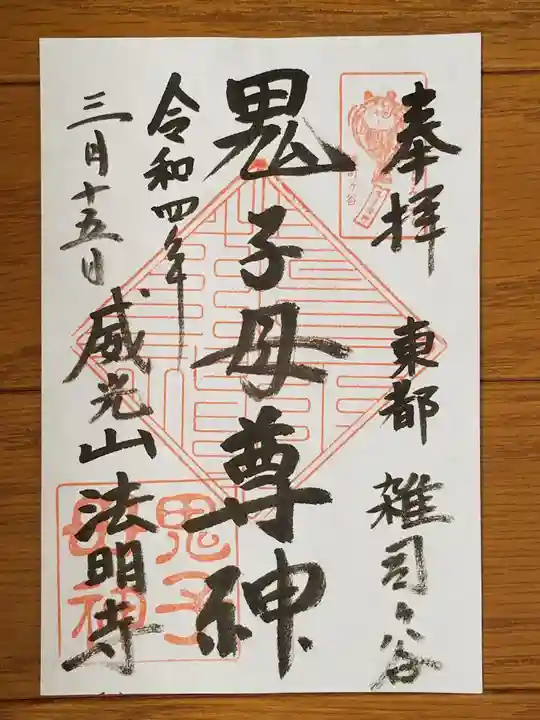 奉拝 東都 雑司ヶ谷
鬼子母尊神
令和四年
三月十五日
威光山法明寺
鬼子
母神